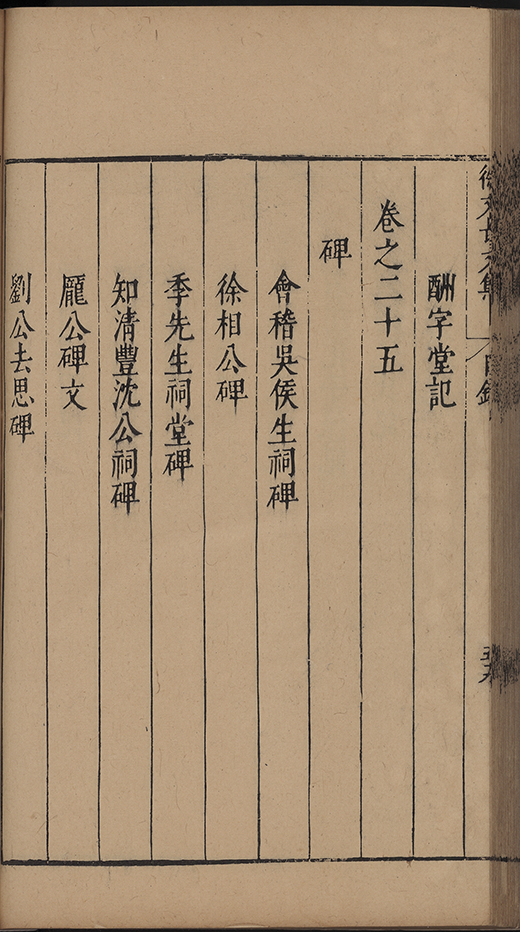 徐文長文集
目錄
酬字堂記
卷之二十五
碑
會稽吳侯生祠碑
徐相公碑
季先生祠堂碑
知清豐沈公祠碑
龐公碑文
劉公去思碑